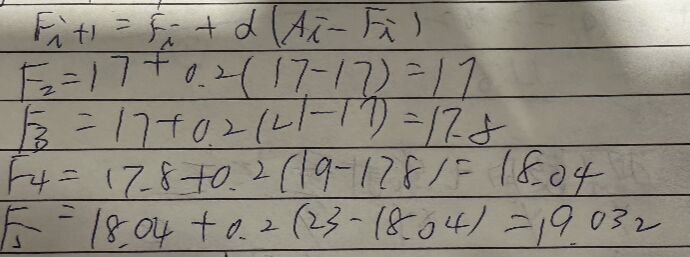 Fi+1 = Fi + α(Ai - Fi)
F2 = 17 + 0.2(17-17) = 17
F3 = 17+0.2(21-17) = 17.8
F4 = 17.8+0.2(19-17.8) = 18.04
F5 = 18.04 + 0.2(23-18.04) = 19.032